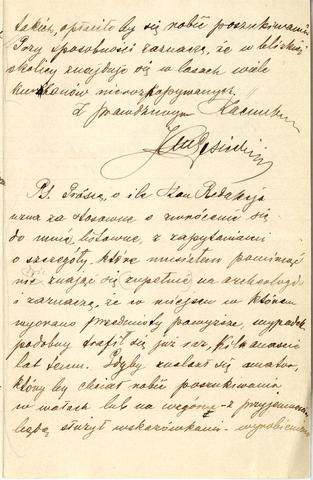 takich, opłaciło by się robić poszukiwania
Przy sposobności zaznaczę, że w blizkiej
okolicy znajduje się w lasach wiele
kurhanów nierozkopywanych.
Z prawdziwym
Ps. Proszę, o ile Szan Redakcja
uzna za stosowne o zwrócenie się
do mnie listowne, z zapytaniami
o szczegóły, które musiałem pominąć
nie znając się zupełnie na archeologji
i zaznaczę, że w miejscu w którem
wyorano przedmioty powyższe, wypadek
podobny trafił się już raz, kilkanaście
lat temu. Gdyby znalazł się amator,
który by chciał robić poszukiwania
w wałach lub na wzgórzu - z przyjemnością
będę służył wskazówkami -